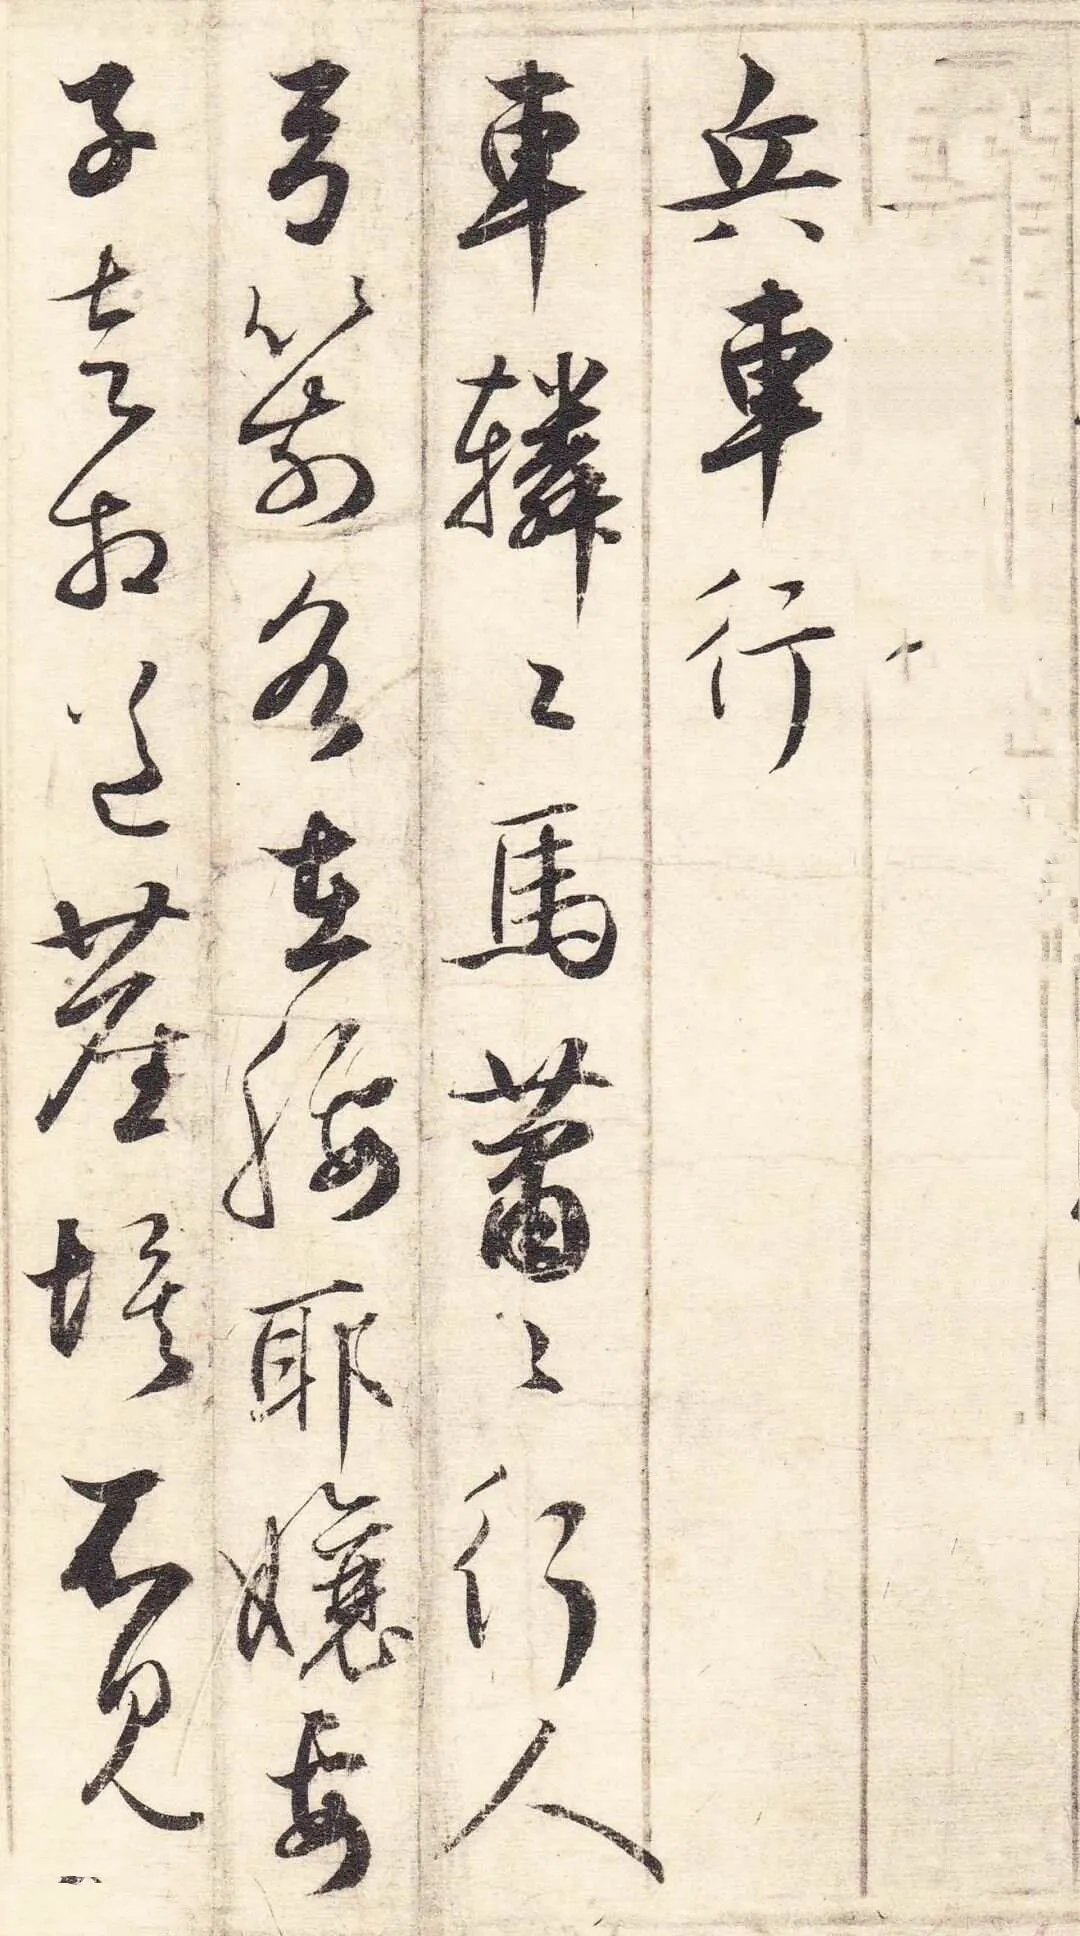 兵車行
車轔〻馬蕭〻行人
弓箭各在腰耶孃妻
子走相送塵埃不見